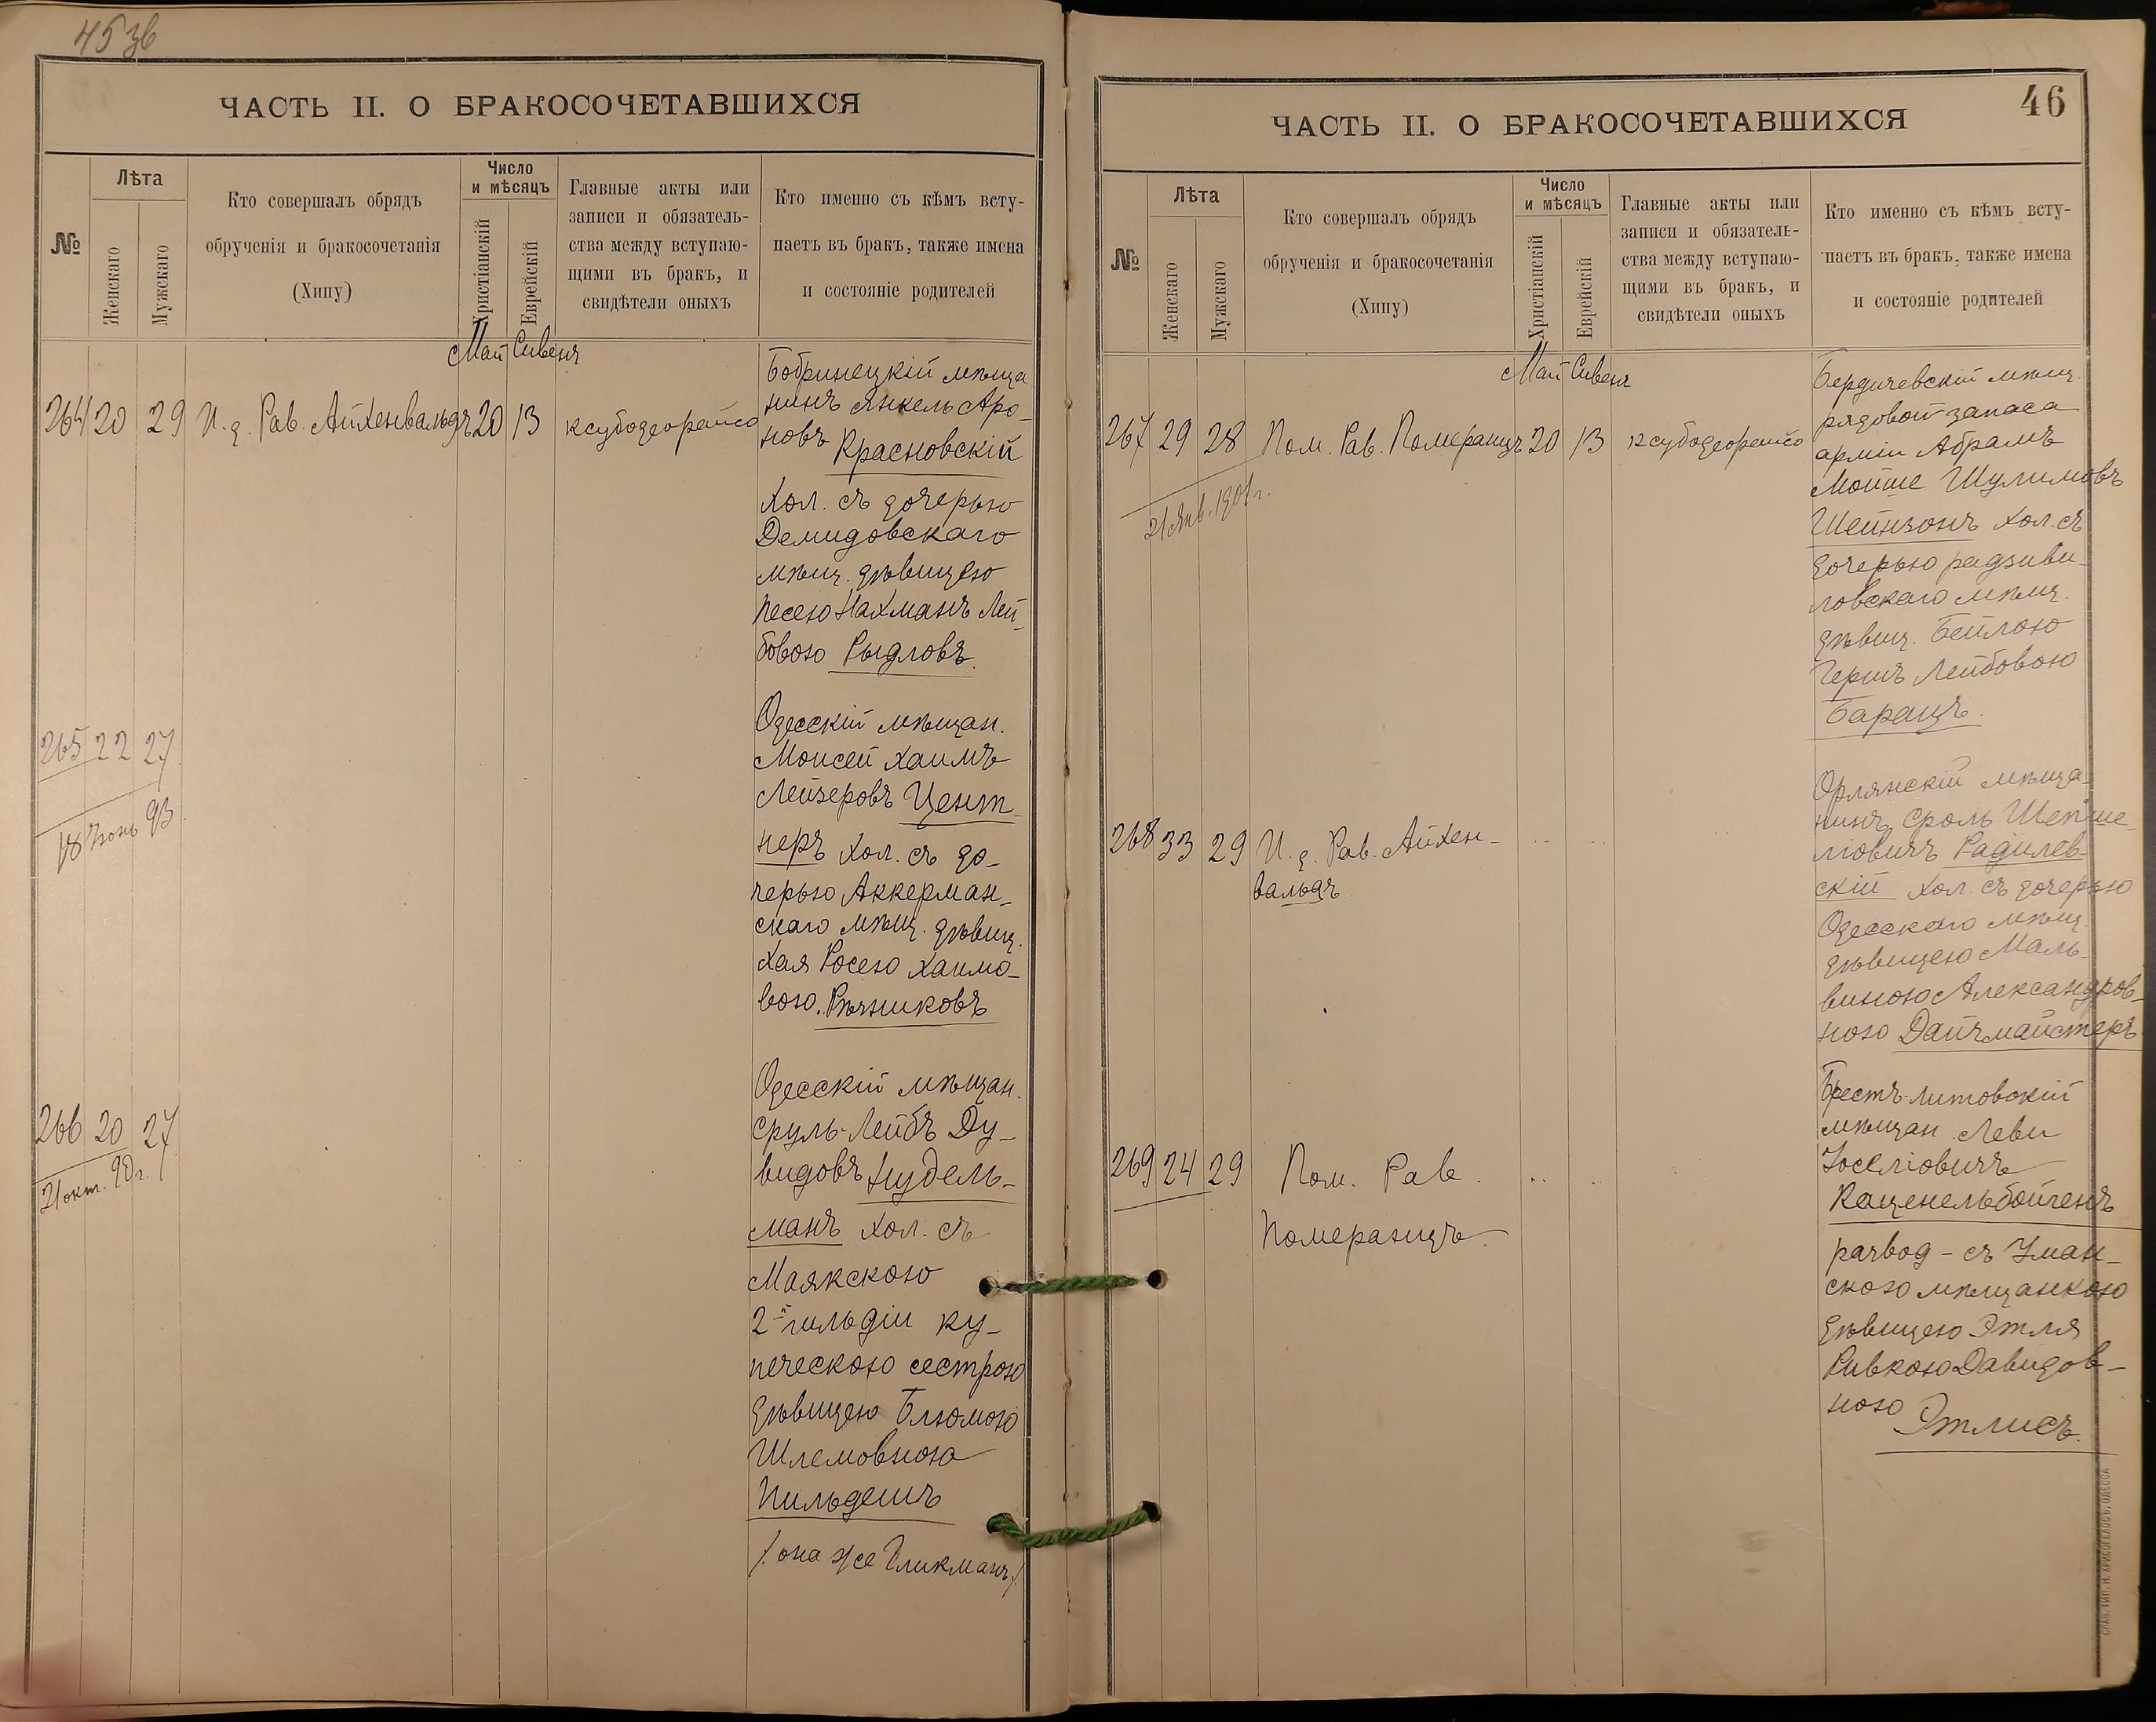 45 зв
ЧАСТЬ II. О БРАКОСОЧЕТАВШИХСЯ
№
Лѣта
Женскаго
Мужскаго
Кто совершалъ обрядъ
обрученія и бракосочетанія
(Хипу)
Число
и мѣсяцъ
Христіанскій
Еврейскій
Главные акты или
записи и обязатель-
ства между вступаю-
щими въ бракъ, и
свидѣтели оныхъ
Кто именно съ кѣмъ всту-
паетъ въ бракъ, также имена
и состояніе родителей
Май Сивенъ
264 20 29 И. д. Рав. Айхенвальдъ 20 13 ксубодеорейсо
Бобринецкій мѣща
нинъ Янкель Аро-
новъ Красновскій
хол. съ дочерью
Демидовскаго
мѣщ. дѣвицею
Песею Нахманъ Лей-
бовою Рыдловъ.
265 22 27
18 Іюнь 93
Одесскій мѣщан.
Моисей Хаимъ
Лейзеровъ Цент-
неръ хол. съ до-
черью Аккерман-
скаго мѣщ. дѣвиц.
Хая Росею Хаимо-
вою. Рѣзниковъ
266 20 27
21 окт. 90 г.
Одесскій мѣщан.
Сруль-Лейбъ Ду-
видовъ Нудель-
манъ хол. съ
Маякскою
2-й гильдіи ку-
печескою сестрою
дѣвицею Блюмою
Шлемовною
Пильдешъ
/. она же Гликманъ./
46
ЧАСТЬ II. О БРАКОСОЧЕТАВШИХСЯ
№
Лѣта
Женскаго
Мужскаго
Кто совершалъ обрядъ
обрученія и бракосочетанія
(Хипу)
Число
и мѣсяцъ
Христіанскій
Еврейскій
Главные акты или
записи и обязатель-
ства между вступаю-
щими въ бракъ, и
свидѣтели оныхъ
Кто именно съ кѣмъ всту-
паетъ въ бракъ, также имена
и состояніе родителей
Май Сивенъ
267 29 28 Пом. Рав. Померанцъ 20 13 ксубодеорейсо
21 Янв. 1901 г.
Бердичевскій мѣщ.
рядовой запаса
арміи Абрамъ
Мойше Шулимовъ
Шейнзонъ хол. съ
дочерью радзиви-
ловскаго мѣщ.
дѣвиц. Бейлою
Гершъ Лейбовою
Баращъ.
268 33 29 И. д. Рав. Айхен-
вальдъ
Орлянскій мѣща-
нинъ Сроль Шепше-
ліовичъ Радилев-
скій хол. съ дочерью
Одесскаго мѣщ
дѣвицею Маль-
виною Александров-
ною Дайчмайстеръ
269 24 29 Пом. Рав.
Померанцъ.
Брестъ-литовскій
мѣщан. Леви
Іоселіовичъ
Каценельбойгенъ
развод - съ Уман-
скою мѣщанкою
дѣвицею Этля
Ривкою Давидов-
ною Этлисъ.
СЛАВ. ТИП. Н. ХРИСОГЕЛОСЪ, ОДЕССА